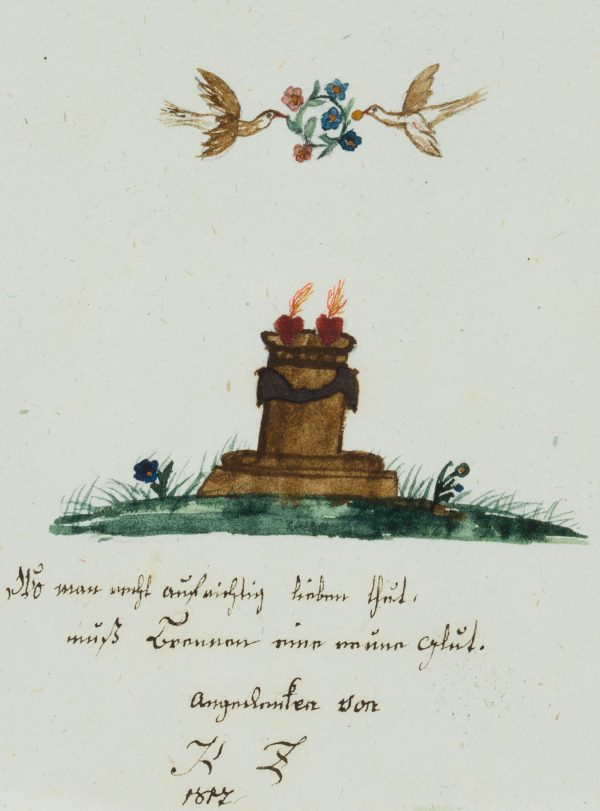 Wo man recht aufrichtig lieben thut,
muß Brennen eine reine Glut.
Angedenken von
K Z
1817